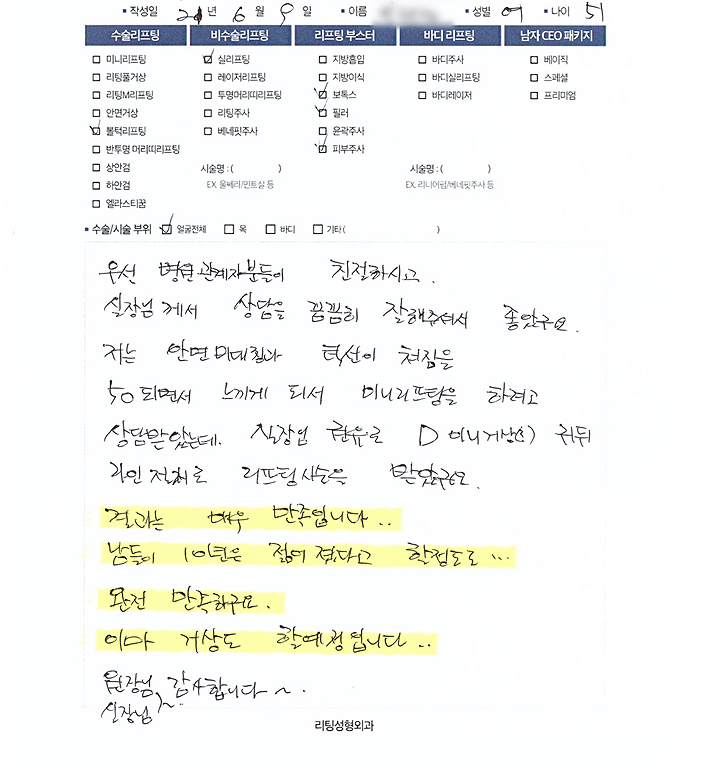 ▪ 작성일 21년 6월 9일 ▪ 이름 ▪ 성별 여 ▪ 나이 51
수술리프팅 비수술리프팅 리프팅 부스터 바디 리프팅 남자 CEO 패키지
미니리프팅 실리프팅 지방흡입 바디주사 베이직
리팅풀거상 레이저리프팅 지방이식 바디실리프팅 스페셜
리팅M리프팅 투명머리띠리프팅 보톡스 바디레이저 프리미엄
안면거상 리팅주사 필러
볼턱리프팅 베네핏주사 윤곽주사
반투명 머리띠리프팅 피부주사
상안검 시술명 : ( ) 시술명 : ( )
하안검 EX. 울쎄라/민트실 등 EX. 리니어펌/베네핏주사 등
엘라스티꿈
▪ 수술/시술 부위 얼굴전체 목 바디 기타 ( )
우선 병원 관계자분들이 친절하시고.
실장님께서 상담을 꼼꼼히 잘해주셔서 좋았구요.
저는 안면 턱선이 처짐을
50되면서 느끼게 되서 미니리프팅을 하려고
상담받았는데. 실장님 권유로 D 미니거상(1) 귀뒤
라인 전체로 리프팅시술을 받았구요.
결과는 매우 만족입니다..
남들이 10년은 젊어 졌다고 할정도로 ...
완전 만족하구요.
이마 거상도 할예정입니다..
원장님, 감사합니다~.
실장님 ~.
리팅성형외과